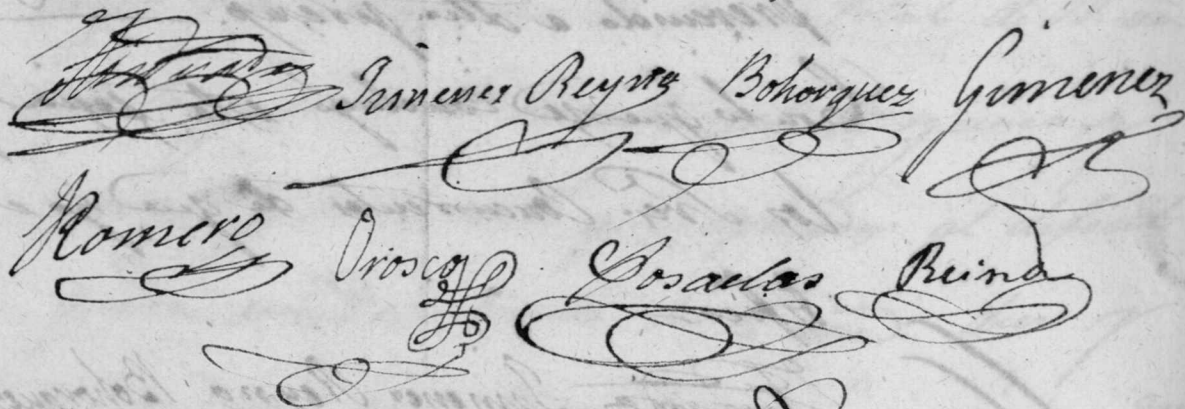 Ximenez Reyna Bohorquez Gimenez
Romero Orosco Posadas Reina